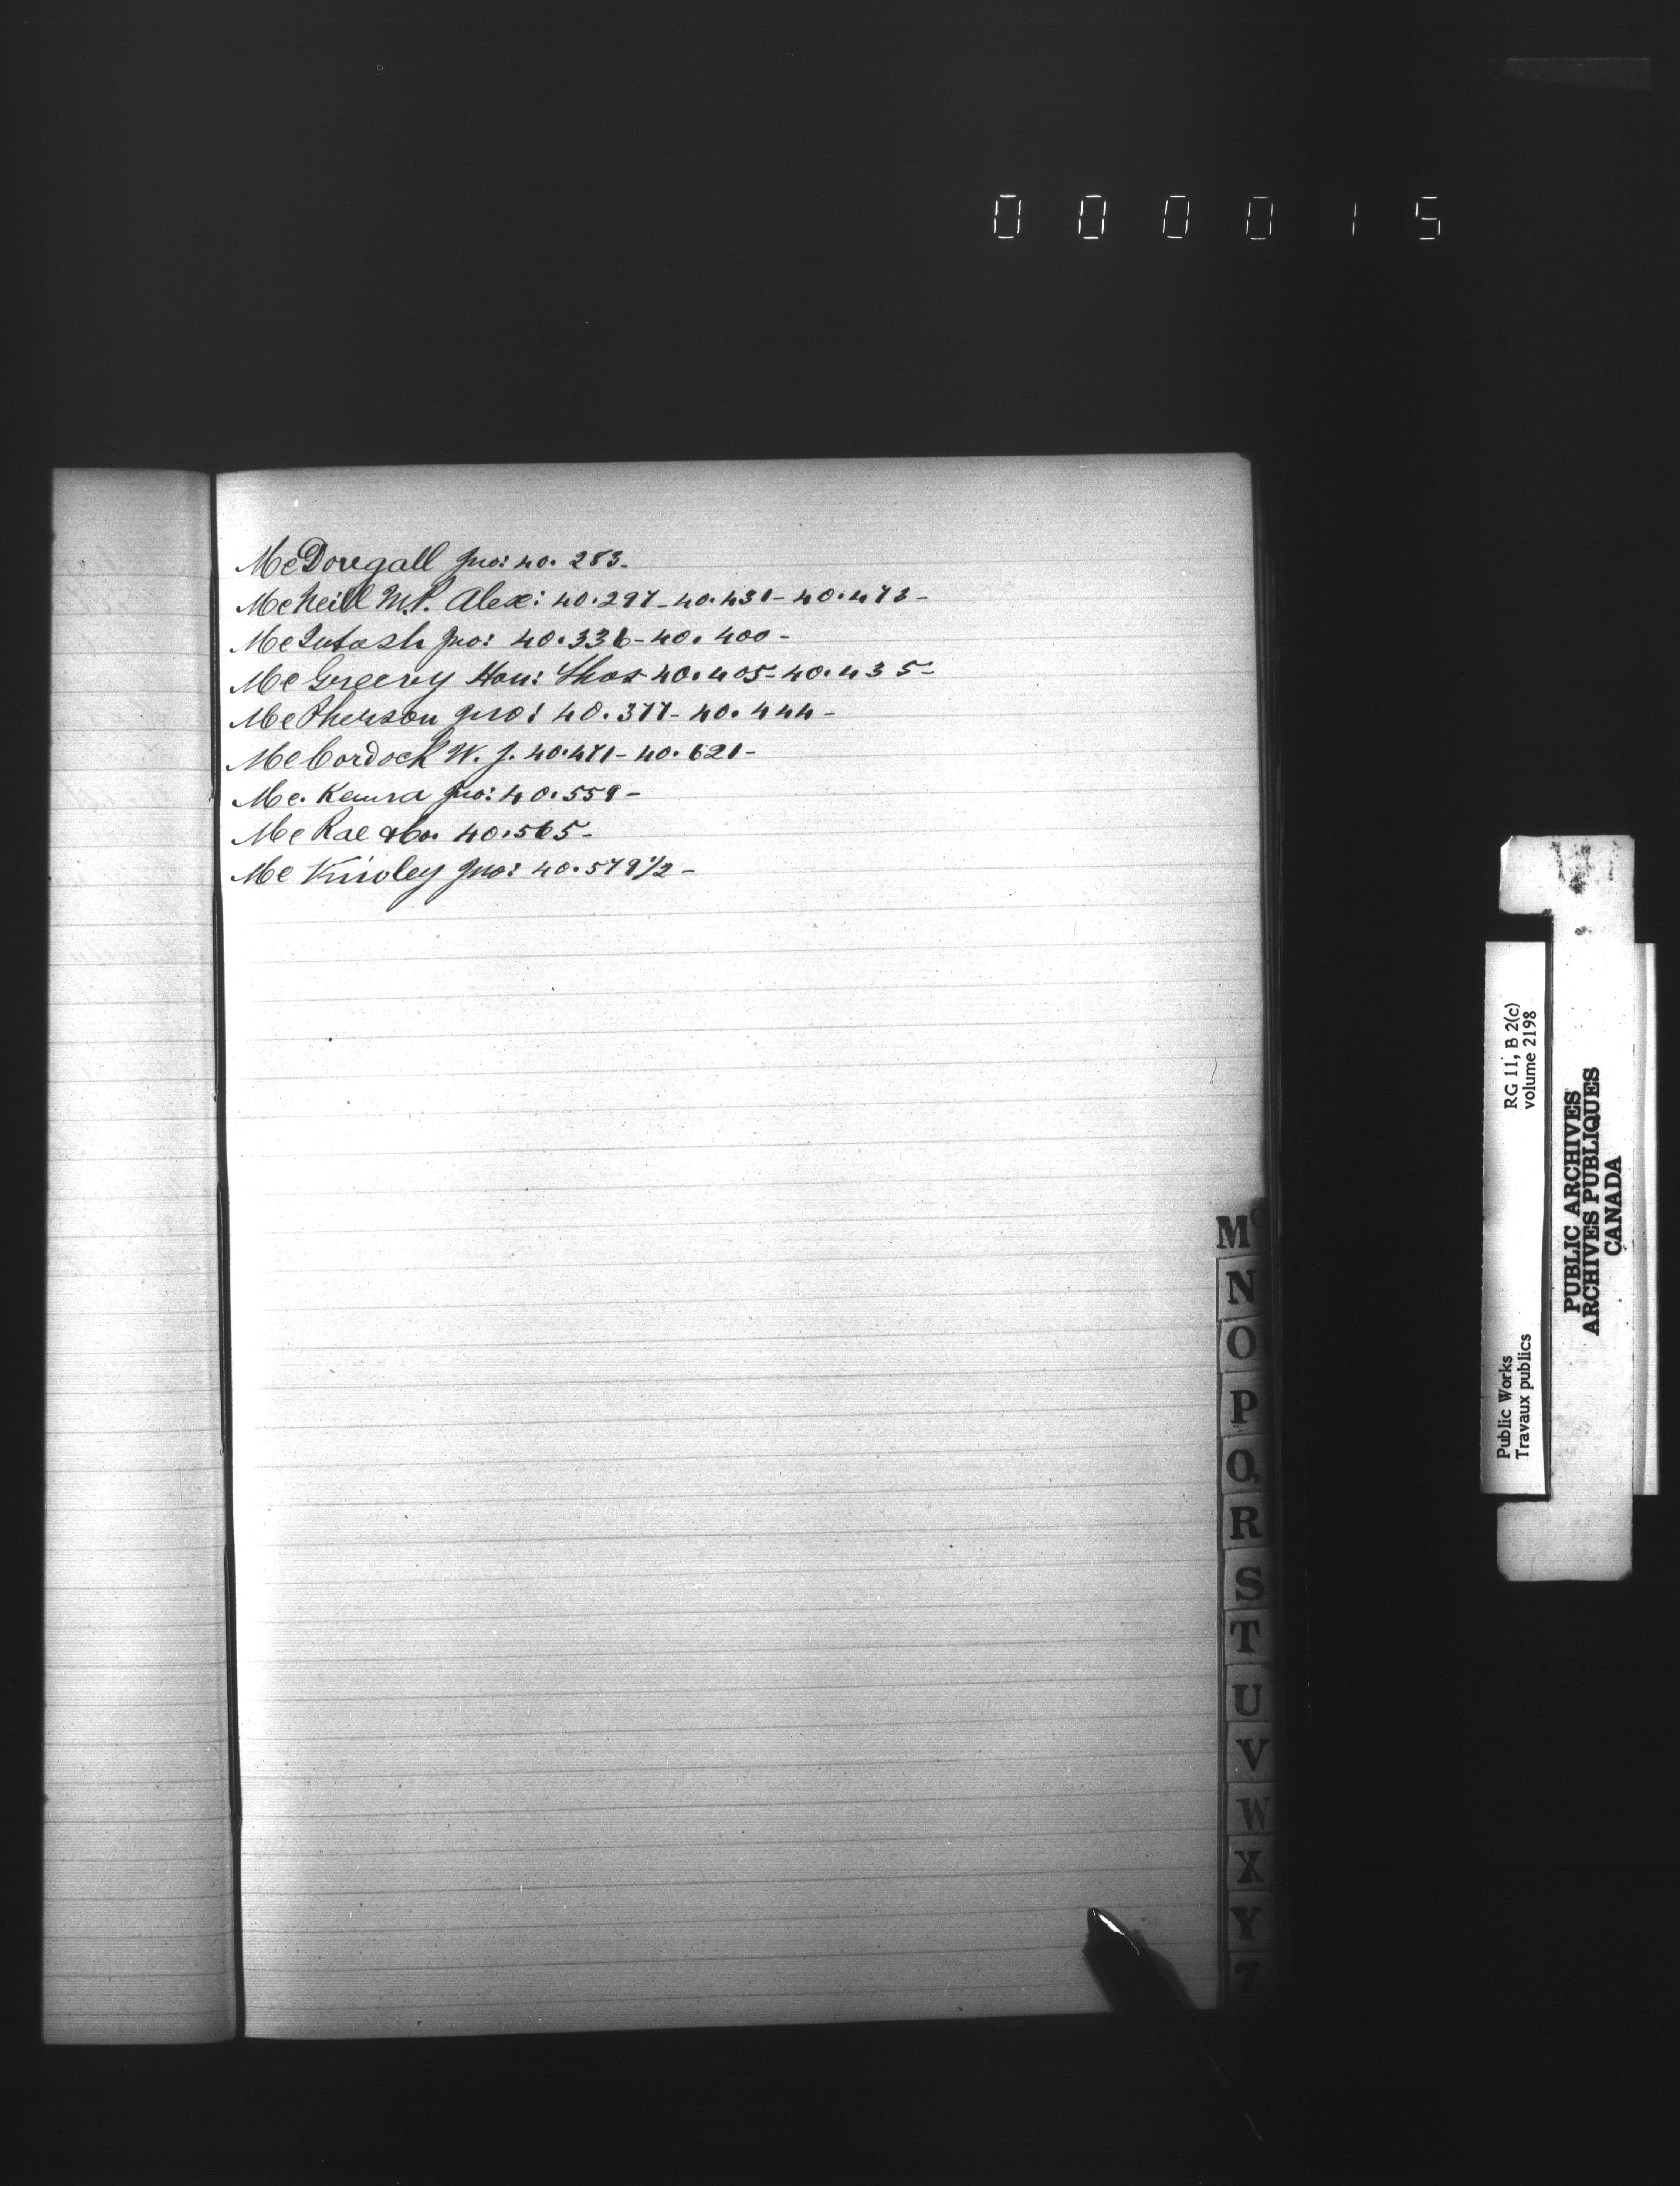 000015
McDougall Jno: 40.283-
McNeill M.P. Alex: 40.297-40.431-40.473-
McIntosh Jno: 40.336-40.400-
McGreevy Hon: Thos 40.405-40.435-
McPherson Jno: 40.377-40.444-
McCordock W. J. 40.471-40.621-
Mc. Jno: 40.559-
McRae &Co. 40.565-
McKinley Jno: 40.579½-
Mc
N
O
P
Q
R
S
T
U
V
W
X
Y
Z
Public Works
Travaux publics
RG 11, B 2(c)
volume 2198
PUBLIC ARCHIVES
ARCHIVES PUBLIQUES
CANADA